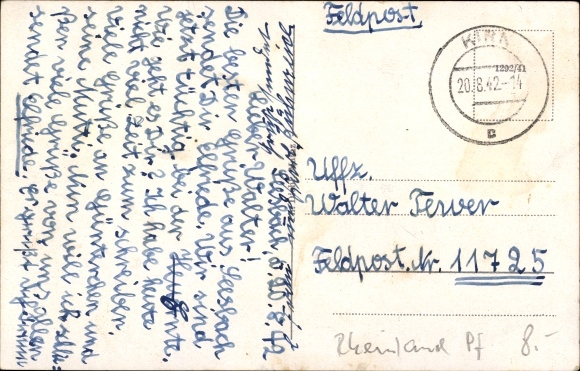 Feldpost.
KIRN
1202/41
20.8.42-14
D
Uffz.
Walter Terver
Feldpost.Nr. 11725
Rheinland Pf 8.-
Seesbach d. 20.8.42
Lieber Walter!
Die besten Grüße aus Seesbach
sendet Dir Elfriede. Wir sind
jetzt tüchtig bei der Ernte.
Wie geht es Dir? Ich habe heute
nicht viel Zeit zum schreiben.
Viele Grüße an und
seine Mutti. Nun will ich
viele Grüße von uns allen
sendet Elfriede.